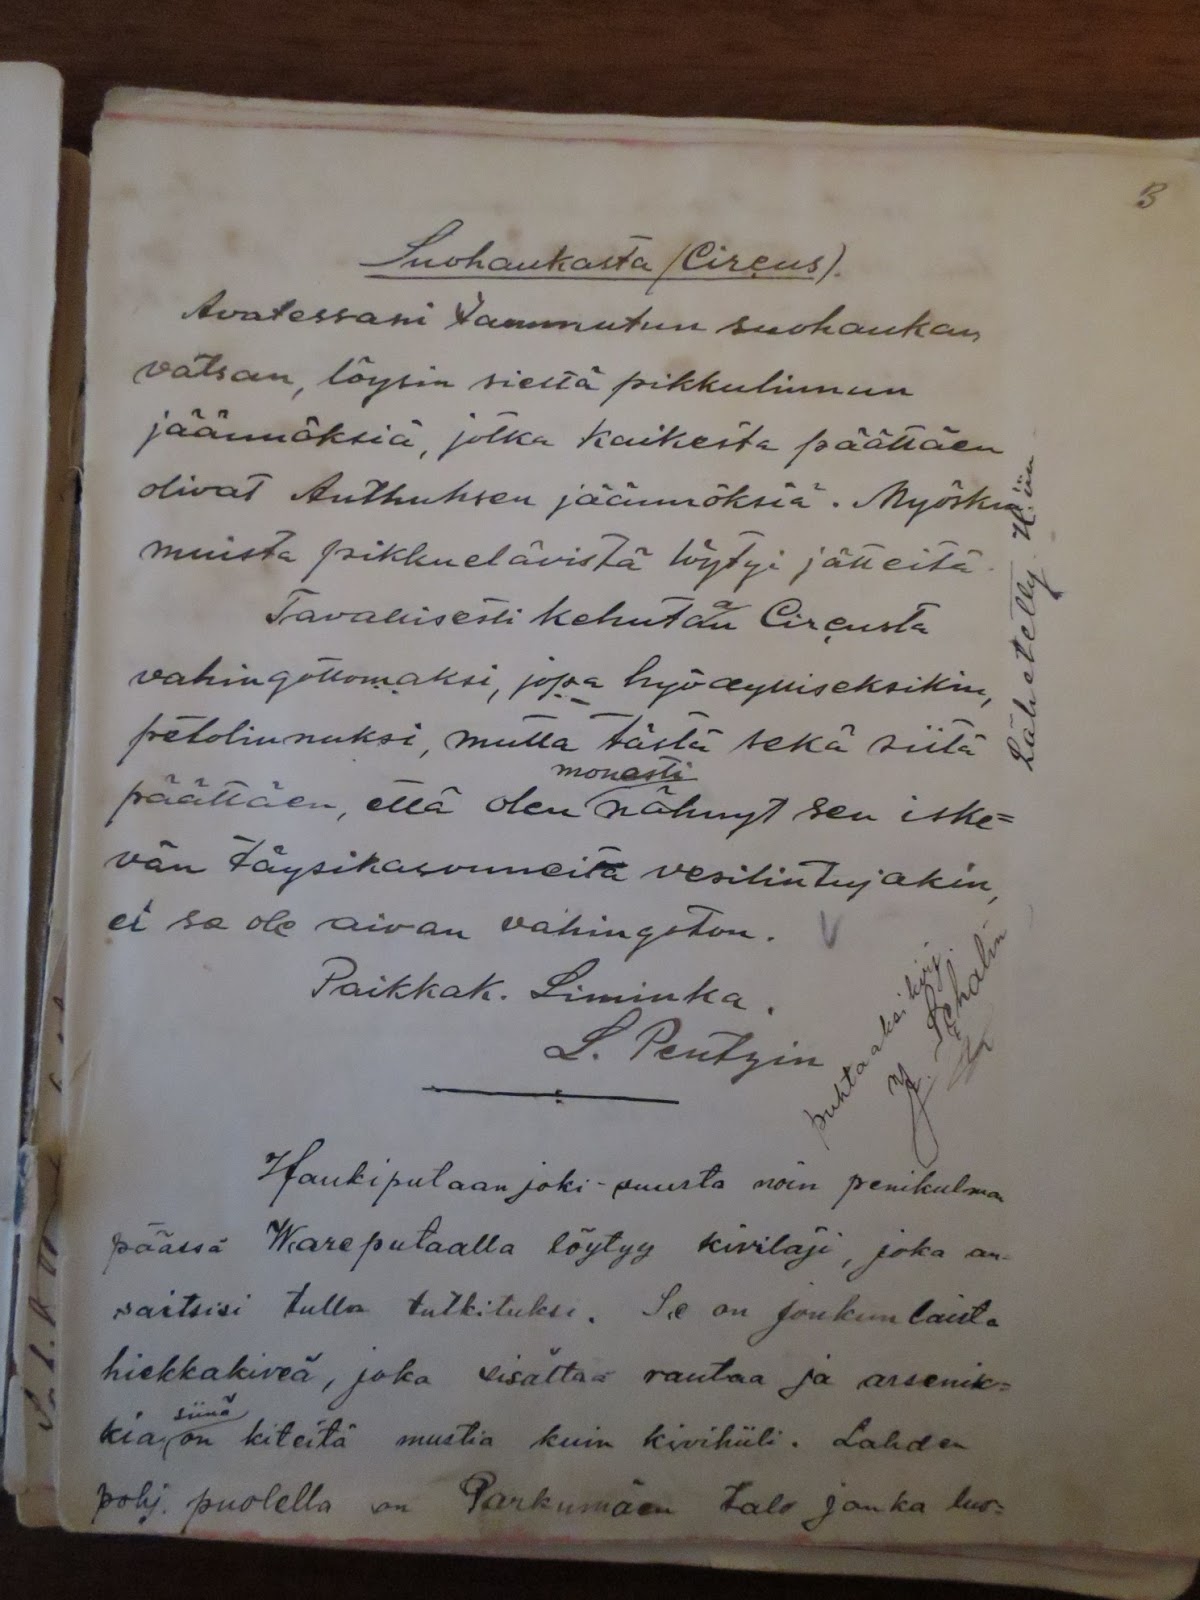 3
Suohaukasta (Circus).
Avatessani tammutun suohaukan
vatsan, löysin siestä pikkulinnun
jäännöksiä, jotka kaikesta päättäen
olivat Anthuksen jäännöksiä. Myöskin
muista pikkuelävistä löytyi jätteitä.
Tavallisesti kehutaan Circusta
vahingottomaksi, jopa hyödylliseksikin,
petolinnuksi, mutta tästä sekä siitä
päättäen, että olen monesti nähnyt sen iske=
vän täysikasvuneita vesilintujakin,
ei se ole aivan vahingoton.
Paikkak. Liminka.
L. Pentzin
Lähetelty H:iin
puhtaaksi kirj.
Y. Schalin
Haukiputaan joki-suusta noin penikulman
päässä Wareputaalla löytyy kivilaji, joka an-
saitsisi tulla tutkituksi. Se on jonkunlaista
hiekkakiveä, joka sisältaa rautaa ja arsenik=
kia, siinä on kiteitä mustia kuin kivihiili. Lahden
pohj. puolella on Parkumäen talo jonka luo=